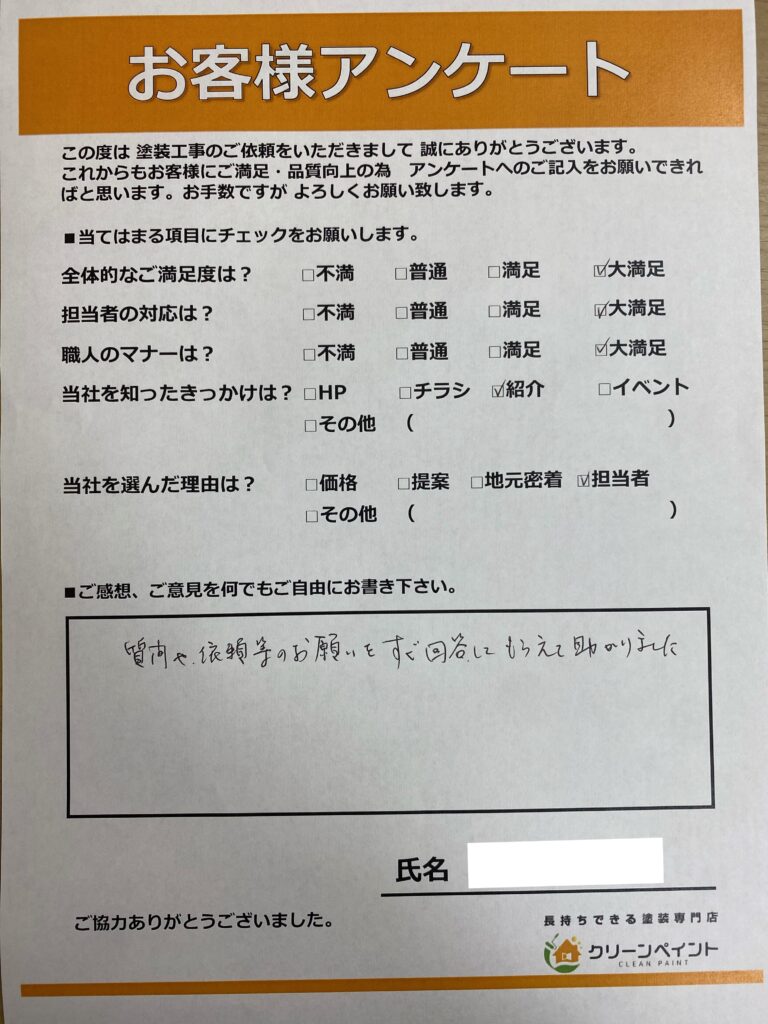 お客様アンケート
この度は 塗装工事のご依頼をいただきまして 誠にありがとうございます。
これからもお客様にご満足・品質向上の為　アンケートへのご記入をお願いできれ
ばと思います。お手数ですが よろしくお願い致します。
■当てはまる項目にチェックをお願いします。
全体的なご満足度は？ □不満 □普通 □満足 ☑大満足
担当者の対応は？ □不満 □普通 □満足 ☑大満足
職人のマナーは？ □不満 □普通 □満足 ☑大満足
当社を知ったきっかけは？ □HP □チラシ ☑紹介 □イベント
□その他 （ ）
当社を選んだ理由は？ □価格 □提案 □地元密着 ☑担当者
□その他 （ ）
■ご感想、ご意見を何でもご自由にお書き下さい。
質問や、依頼等のお願いもすぐ回答してもらえて助かりました
氏名
ご協力ありがとうございました。
長持ちできる塗装専門店
クリーンペイント
CLEAN PAINT